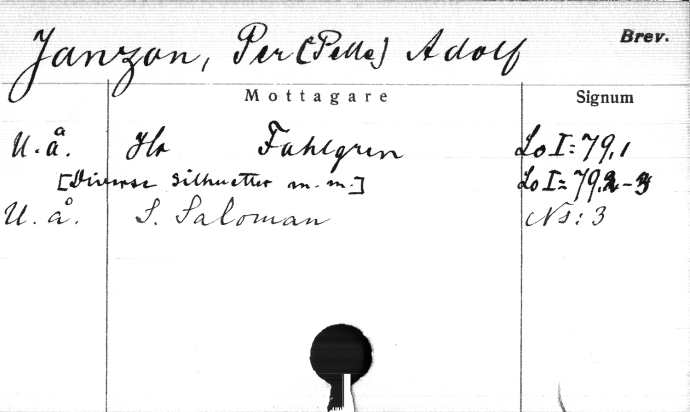 Janzon, Per (Pelle) Adolf Brev.
Mottagare Signum
U. å. Hr Fahlgren Lo I: 79,1
[Diverse silhuetter m. m.] Lo I: 79,2-3
U. å. S. Saloman Ns: 3